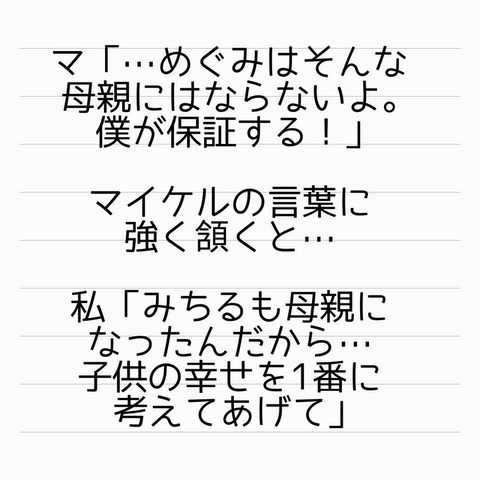 マ「…めぐみはそんな
母親にはならないよ。
僕が保証する！」
マイケルの言葉に
強く頷くと…
私「みちるも母親に
なったんだから…
子供の幸せを1番に
考えてあげて」